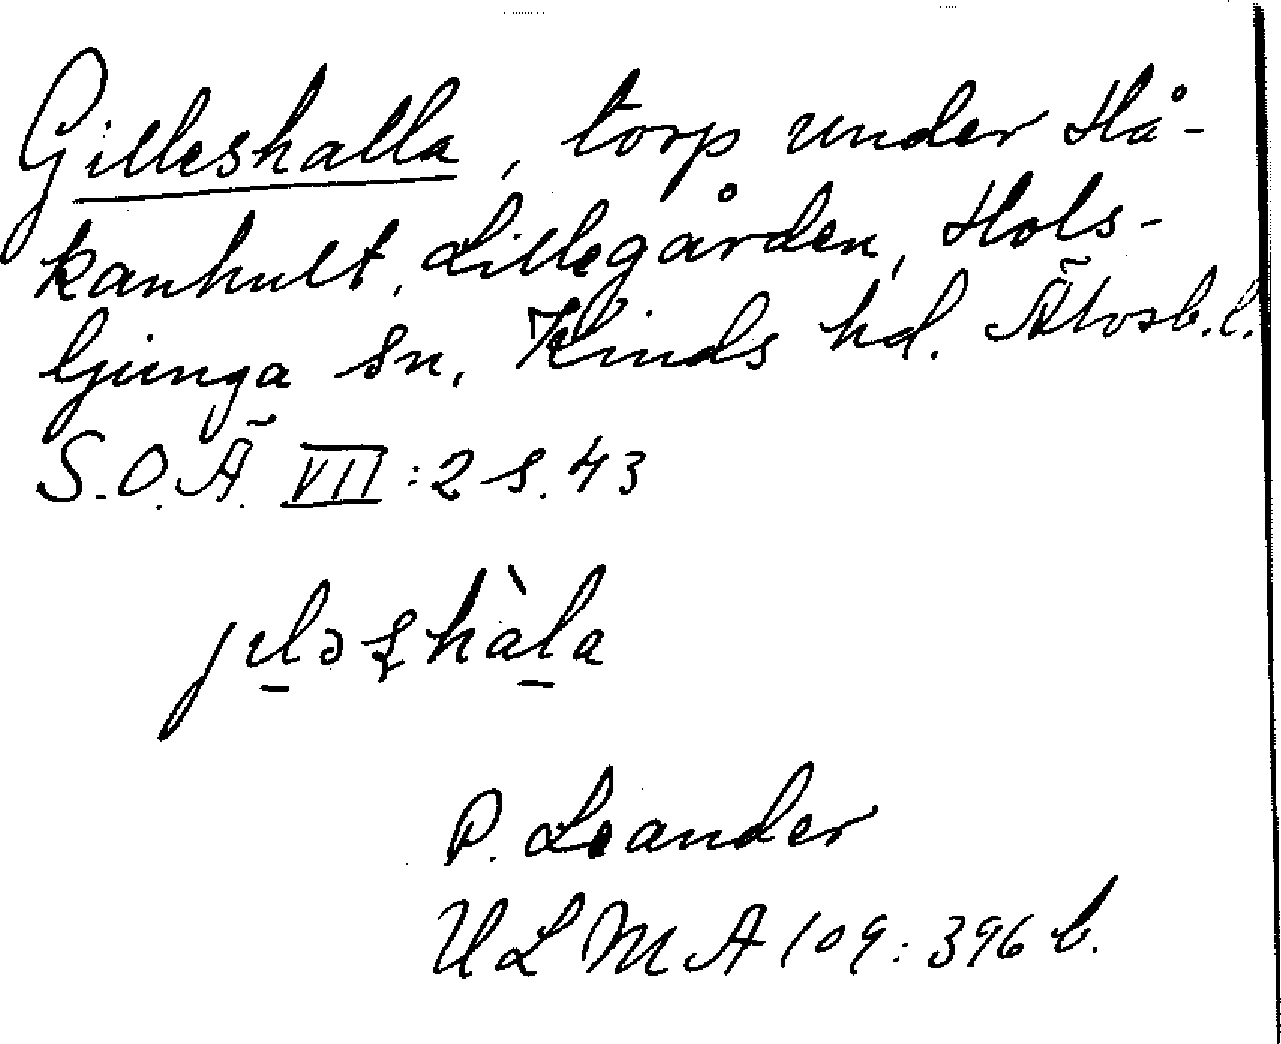 Gilleshalla, torp under Hå-
kanhult, Lillegården, Hols-
ljunga sn, Kinds hd. Älvsb. l.
S.O.Ä. VII:2 s. 43
P. Leander
ULMA 109:396 b.